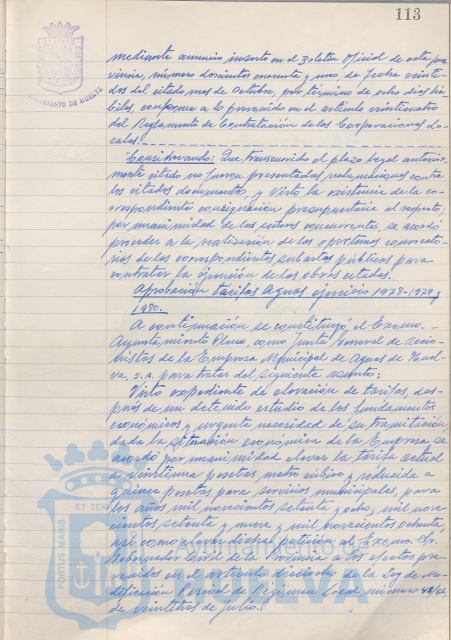 113
AYUNTAMIENTO DE HUELVA
mediante anuncio inserto en el Boletín Oficial de esta pro
vincia, número doscientos cuarenta y uno de fecha veinti-
dos del citado mes de Octubre, por término de ocho días há
biles, conforme a lo prevenido en el artículo veinticuatro
del Reglamento de Contratación de las Corporaciones Lo-
cales.
Considerando: Que transcurrido el plazo legal anterior
mente citado no fueron presentadas reclamaciones contra
los citados documentos, y visto la existencia de la co-
rrespondiente consignación presupuestaria al respecto;
por unanimidad de los señores concurrentes, se acordó
proceder a la realización de las oportunas convocato-
rias de las correspondientes subastas públicas para
contratar la ejecución de las obras citadas.
Aprobación tarifas Aguas ejercicio 1978-1979 y
1980.
A continuación se constituyó el Excmo.-
Ayuntamiento Pleno, como Junta General de Accio-
nistas de la Empresa Municipal de Aguas de Huel-
va, S.A. para tratar del siguiente asunto:
Visto expediente de elevación de tarifas, des-
pués de un detenido estudio de los fundamentos
económicos y urgente necesidad de su tramitación
dada la situación económica de la Empresa, se
acordó por unanimidad elevar la tarifa actual
a veintiuna pesetas metro cúbico y reducida a
quince pesetas para servicios municipales, para
los años mil novecientos setenta y ocho, mil nove-
cientos setenta y nueve y mil novecientos ochenta,
así como elevar dicha petición al Excmo. Sr.
Gobernador Civil de la Provincia a los efectos pre-
venidos en el artículo dieciocho de la Ley de Mo-
dificación Parcial de Régimen Local número 48/66,
de veintitres de Julio.
PORTUS MARIS
ET TERRAE
Ayuntamiento de
HUELVA